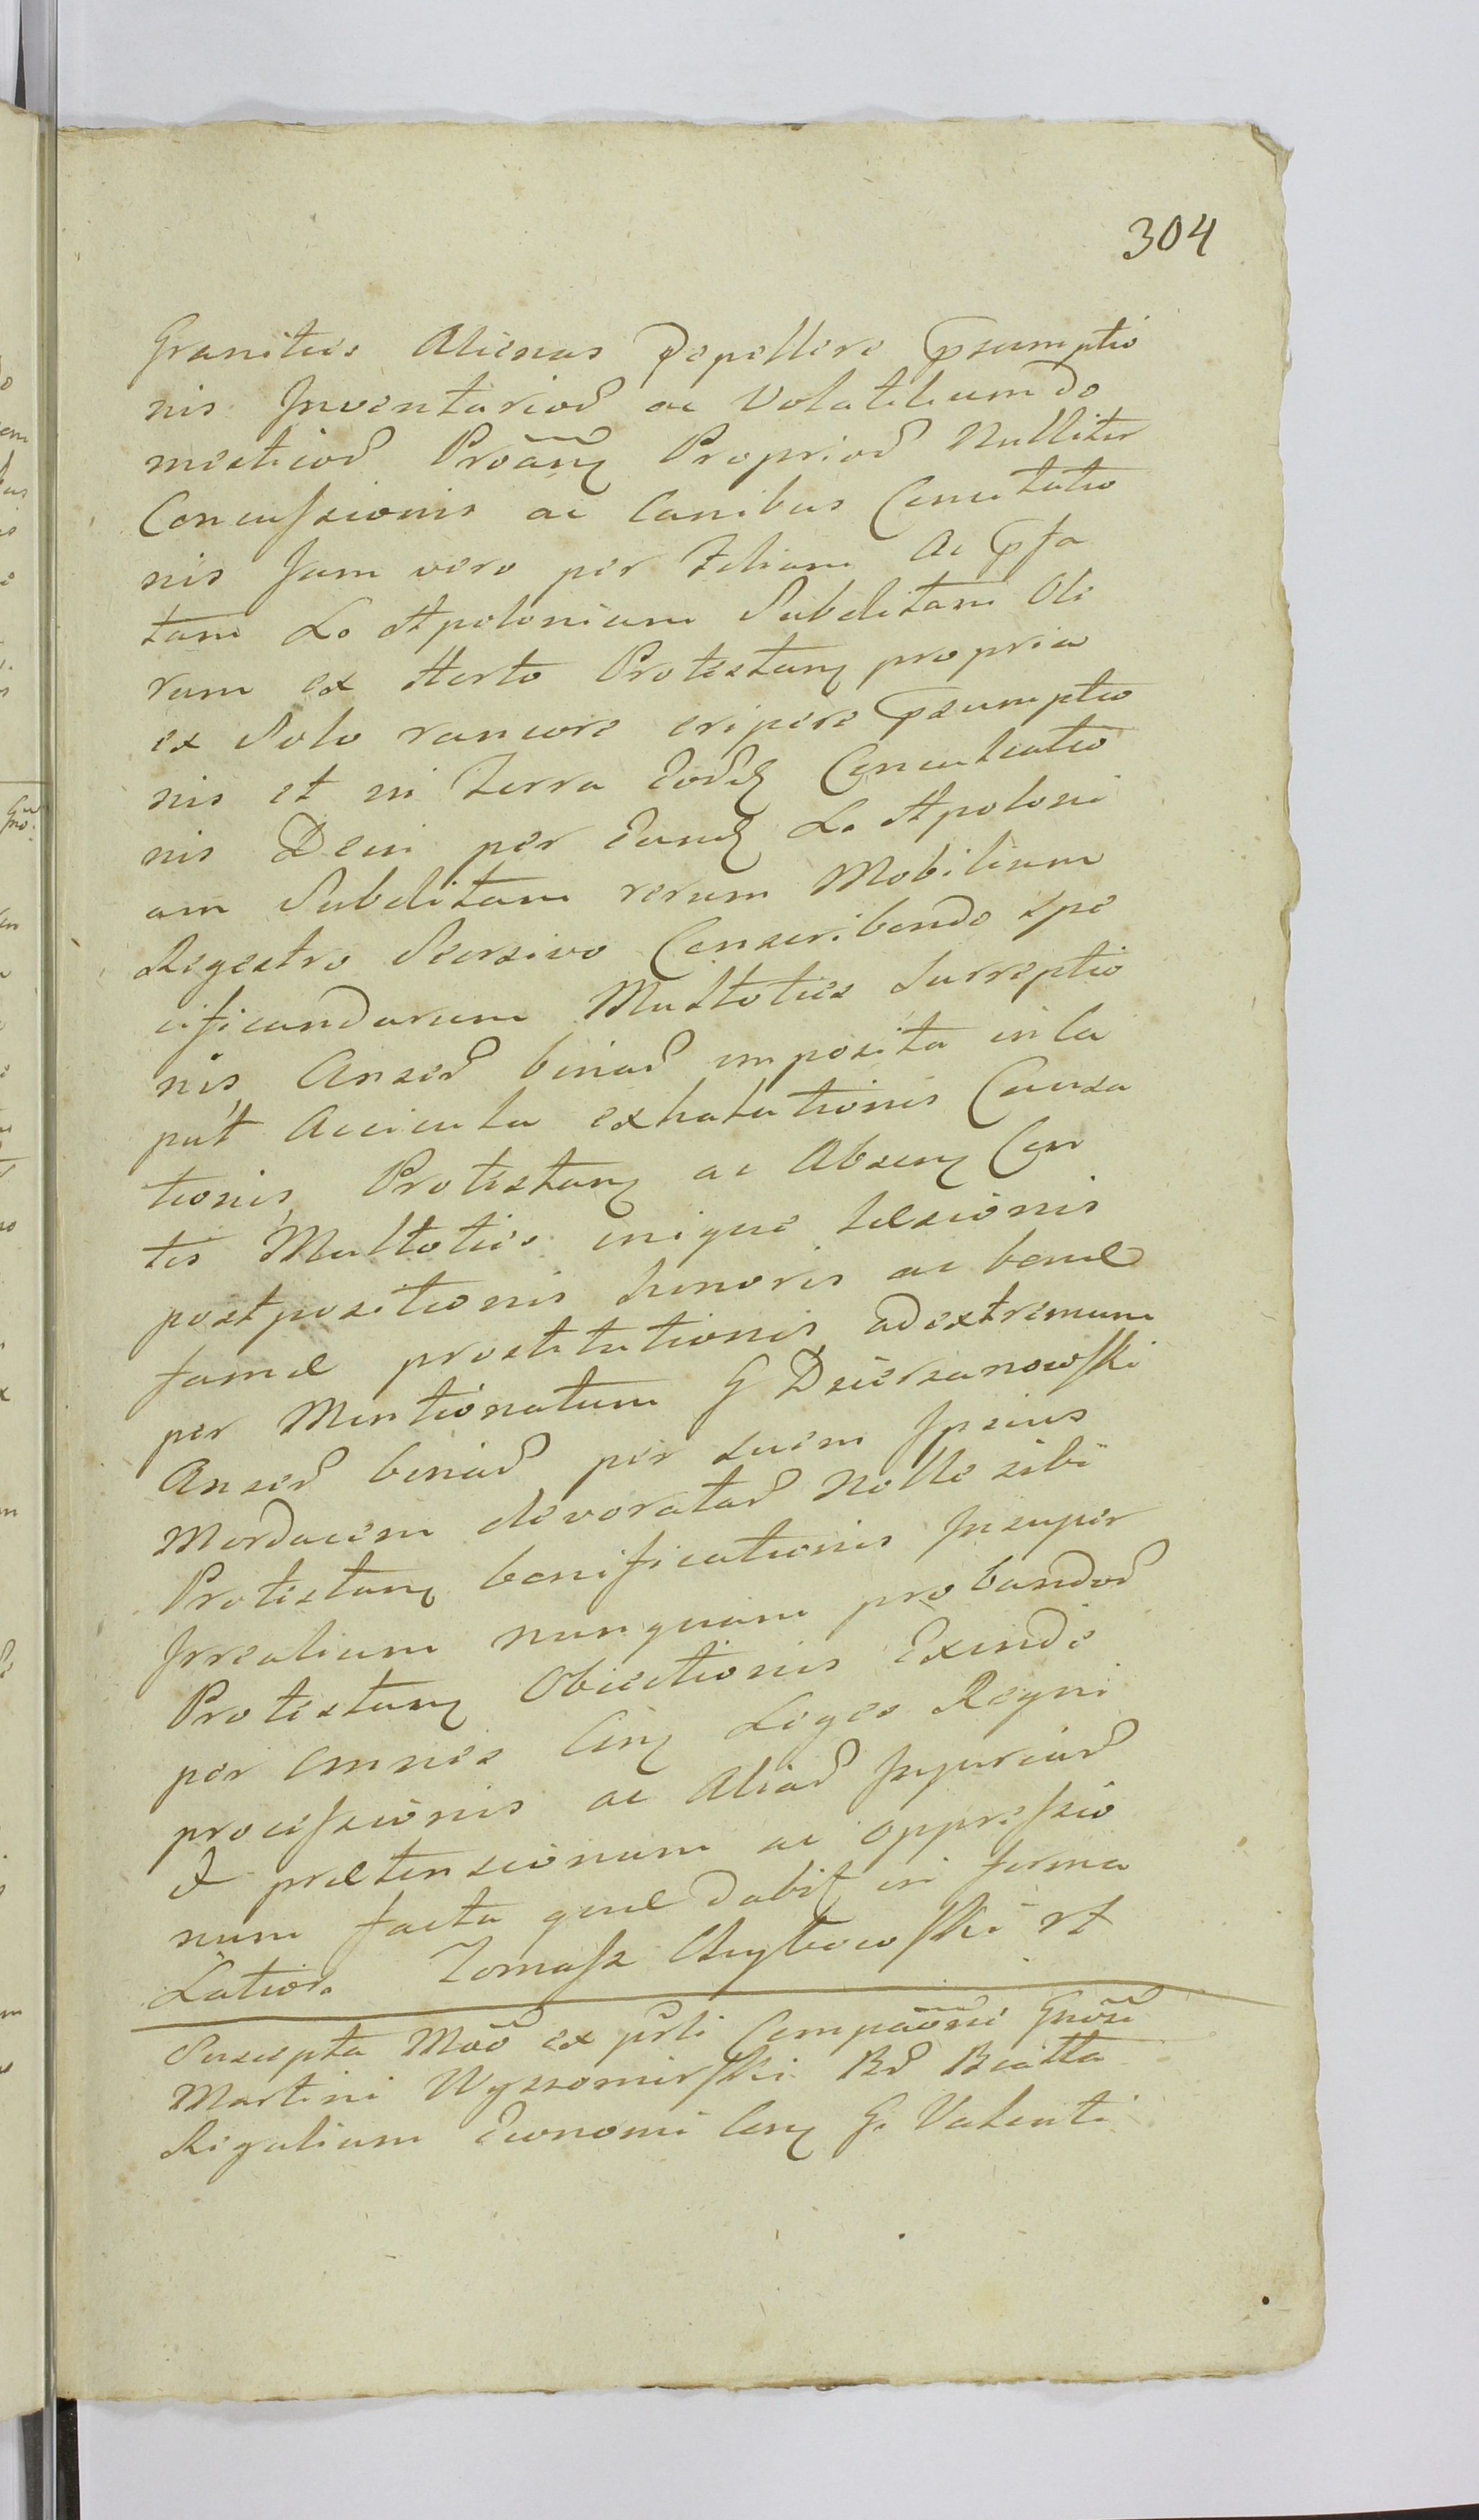 304
Granities Alienas Pepellere Psumptio
nis Inventarioꝝ ac Volatilium do
mesticoꝝ Proãnꝫ Proprioꝝ Nulliter
Concussionis ac Canibus Concitatio
nis Jam vero per Filiam Ac Pfa
tam L. Apoloniam Subditam Ole
rum ex Horto Protestanꝫ propria
ex Solo rancore eripere Psumptio
nis et in Terra Eordꝫ Conculcatio
nis Dein per Eandꝫ L. Apoloni
am Subditam rerum Mobilium
Regestro Seorsivo Conscribendo spe
cificandarum Multoties Surreptio
nis, Anseꝝ binaꝝ imposita in Ca
put Acicula exhalationis Causa
tionis, Protestanꝫ ac Absenꝫ Con
tis Multoties inique Læsionis
postpositionis honoris ac bonæ
famæ prostitutionis, ad extremum
per Mentionatum G Dzierzanowski
Anseꝝ binaꝝ per Suem Ipsius
Mordacem devorataꝝ Nolle sibi
Protestanꝫ bonificationis Insuper
Irrealium nunquam probandoꝝ
Protestanꝫ Obiectionis Exinde
per omnes Conꝫ Leges Regni
processionis ac Aliaꝝ Injuriaꝝ
& prætensionum ac oppressio
num facta quæ dabit in forma
Latior. Tomasz Chybowski
Suscepta Mõõ ex prli Compaõne Gnõsi
Martini Wyszomirski Bꝝ Biatta
Regalium Economi Conꝫ G. Valenti